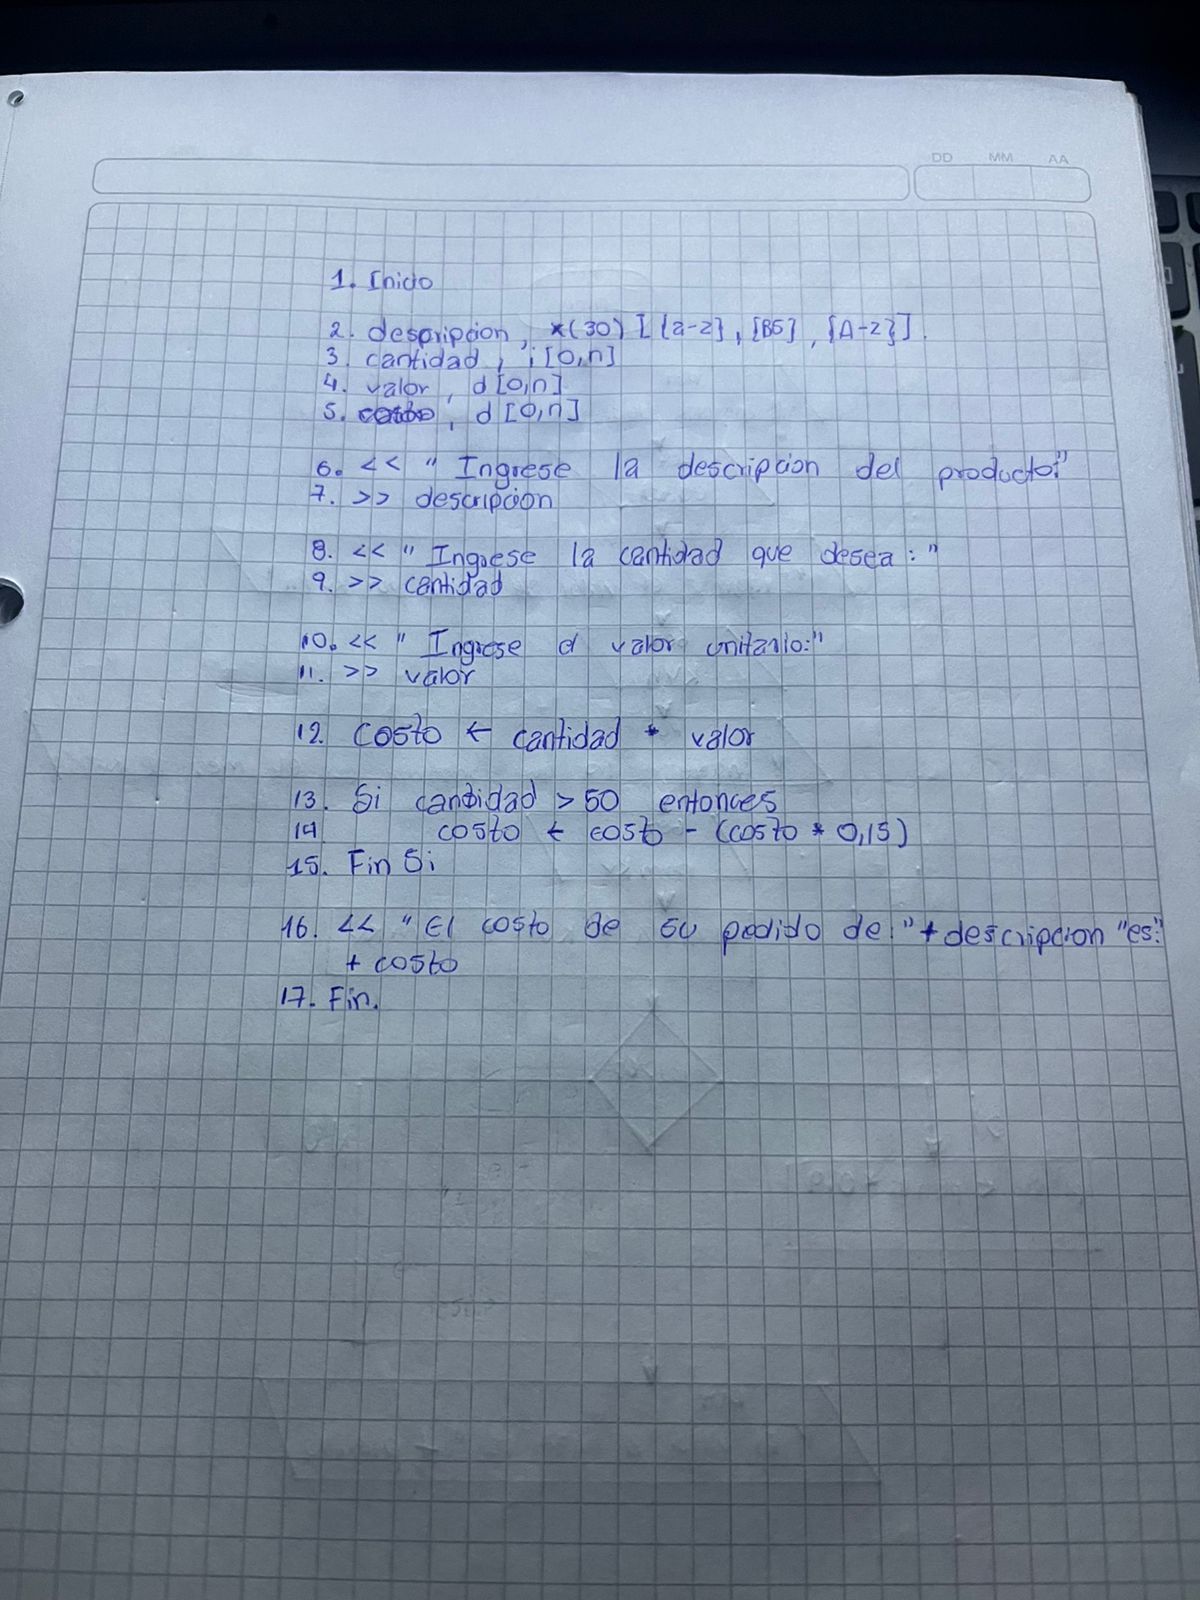 DD MM AA
1. Inicio
2. descripcion, *(30) [{a-z}, [BS], {A-z}].
3. cantidad, i[0,n]
4. valor, d[0,n]
5. costo, d[0,n]
6. << " Ingrese la descripcion del producto:"
7. >> descripcion
8. << " Ingrese la cantidad que desea: "
9. >> cantidad
10. << " Ingrese el valor unitario:"
11. >> valor
12. Costo ← cantidad * valor
13. Si cantidad > 50 entonces
14 costo ← costo - (costo * 0,15)
15. Fin Si
16. << "El costo de su pedido de:"+ descripcion "es:"
+ costo
17. Fin.